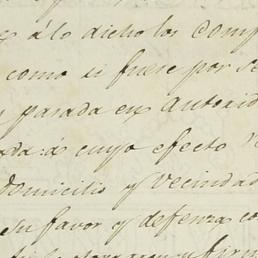 á lo dicho los comp
como si fuere por se
parada en autorid
ada: á cuyo efecto
domicilio y vecindad
su favor y defenza co